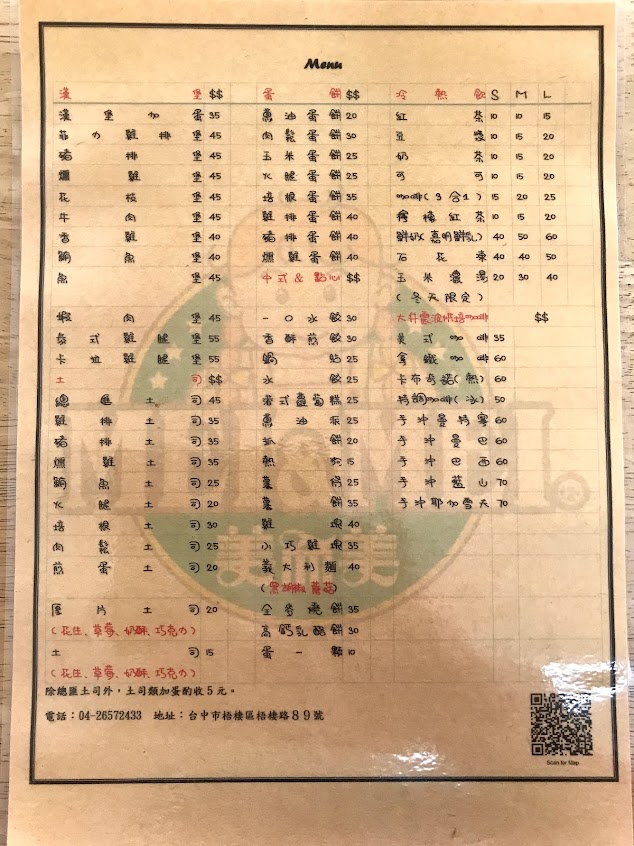 Menu
漢堡 $$
漢堡加蛋 35
菲力雞排堡 45
豬排堡 45
燻雞堡 45
花枝堡 45
牛肉堡 45
香雞堡 40
鮪魚堡 40
魚堡 45
蝦肉堡 45
泰式雞腿堡 55
卡拉雞腿堡 55
土司 $$
總匯土司 45
雞排土司 35
豬排土司 35
燻雞土司 35
鮪魚土司 25
火腿土司 20
培根土司 30
肉鬆土司 25
煎蛋土司 20
厚片土司 20
(花生、草莓、奶酥、巧克力)
土司 15
(花生、草莓、奶酥、巧克力)
蛋餅 $$
蔥油蛋餅 20
肉鬆蛋餅 30
玉米蛋餅 25
火腿蛋餅 25
培根蛋餅 35
雞排蛋餅 40
豬排蛋餅 40
燻雞蛋餅 40
中式&點心 $$
一口水餃 30
香酥煎餃 30
鍋貼 25
水餃 25
港式蘿蔔糕 25
蔥油派 25
抓餅 20
熱狗 15
薯條 25
薯餅 35
雞塊 40
小巧雞塊 35
義大利麵 40
(黑胡椒 蘑菇)
全麥燒餅 35
高鈣乳酪餅 30
蛋一顆 10
冷熱飲 S M L
紅茶 10 10 15
豆漿 10 15 20
奶茶 10 15 20
可可 10 15 20
咖啡(3合1) 15 20 25
檸檬紅茶 10 15 20
鮮奶(嘉明鮮乳) 40 50 60
石花凍 40 40 50
玉米濃湯 20 30 40
(冬天限定)
烘培咖啡 $$
美式咖啡 35
拿鐵咖啡 60
卡布奇諾(熱) 60
特調咖啡(冰) 50
手沖曼特寧 60
手沖曼巴 60
手沖巴西 60
手沖藍山 70
手沖耶加雪夫 70
美而美
除總匯土司外，土司類加蛋酌收5元。
電話：04-26572433 地址：台中市梧棲區梧棲路８９號
Scan for Map